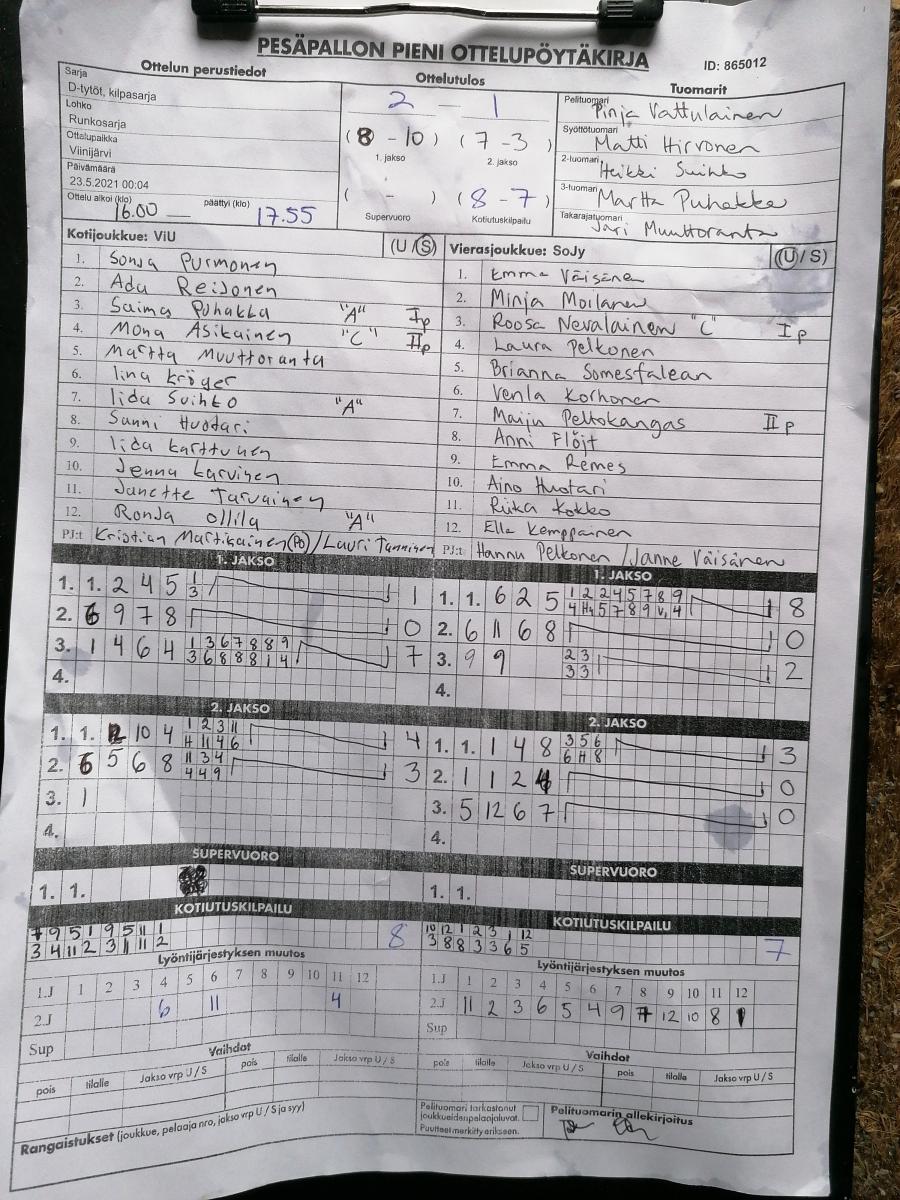 PESÄPALLON PIENI OTTELUPÖYTÄKIRJA
ID: 865012
Ottelun perustiedot
Sarja
D-tytöt, kilpasarja
Lohko
Runkosarja
Ottelupaikka
Viinijärvi
Päivämäärä
23.5.2021 00:04
Ottelu alkoi (klo) 16.00 päättyi (klo) 17.55
Ottelutulos
2 - 1
(8 - 10) (7 - 3)
1. jakso 2. jakso
( - ) (8 - 7)
Supervuoro Kotiutuskilpailu
Tuomarit
Pelituomari Pinja Vattulainen
Syöttötuomari Matti Hirvonen
2-tuomari Heikki Suihko
3-tuomari Martta Puhakka
Takarajatuomari Jari Muuttoranta
Kotijoukkue: ViU (U / S)
1. Sonja Purmonen
2. Ada Reijonen
3. Saima Puhakka "A" Ip
4. Mona Asikainen "C" IIp
5. Martta Muuttoranta
6. Iina Kröger
7. Iida Suihko "A"
8. Sanni Huotari
9. Iida Karttunen
10. Jenna Karvinen
11. Janette Tarvainen
12. Ronja Ollila "A"
PJ:t Kristian Martikainen (PO) / Lauri Tanninen
Vierasjoukkue: SoJy (U / S)
1. Emma Väisänen
2. Minja Moilanen
3. Roosa Nevalainen "C" Ip
4. Laura Pelkonen
5. Brianna Somesfalean
6. Venla Korhonen
7. Maiju Peltokangas IIp
8. Anni Flöjt
9. Emma Remes
10. Aino Huotari
11. Riika Kokko
12. Ella Kemppainen
PJ:t Hannu Pelkonen / Janne Väisänen
1. JAKSO
1. 1. 2 4 5 1 1
3
2. 6 9 7 8 0
3. 1 4 6 4 1 3 6 7 8 8 9 7
3 6 8 8 8 1 4
4.
1. JAKSO
1. 1. 6 2 5 1 2 2 4 5 7 8 9 8
2. 6 11 6 8 0
3. 9 9 2 3 2
3 3
4.
2. JAKSO
1. 1. 12 10 4 1 2 3 11 4
H 11 4 6
2. 6 5 6 8 11 3 4 3
4 4 9
3. 1
4.
2. JAKSO
1. 1. 1 4 8 3 5 6 3
6 H 8
2. 1 1 2 4 0
3. 5 12 6 7 0
4.
SUPERVUORO
1. 1.
SUPERVUORO
1. 1.
KOTIUTUSKILPAILU
7 9 5 1 9 5 11 1 8
3 4 11 2 3 11 11 2
KOTIUTUSKILPAILU
10 12 1 2 3 1 12 7
3 8 8 3 3 6 5
Lyöntijärjestyksen muutos
1.J 1 2 3 4 5 6 7 8 9 10 11 12
2.J 6 11 4
Sup
Lyöntijärjestyksen muutos
1.J 1 2 3 4 5 6 7 8 9 10 11 12
2.J 11 2 3 6 5 4 9 7 12 10 8 1
Sup
Vaihdot
pois tilalle Jakso vrp U / S pois tilalle Jakso vrp U / S
Vaihdot
pois tilalle Jakso vrp U / S pois tilalle Jakso vrp U / S
Rangaistukset (joukkue, pelaaja nro, jakso vrp U / S ja syy)
Pelituomari tarkastanut
joukkueidenpelaajaluvat.
Puutteet merkitty erikseen.
Pelituomarin allekirjoitus